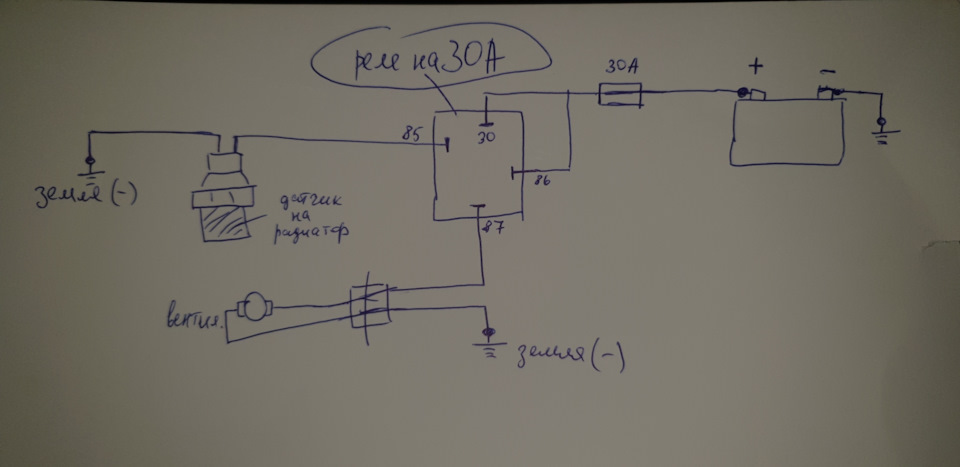 реле на 30А
30А
+
-
85
30
86
87
земля (-)
датчик
на
радиатор
вентил.
земля (-)